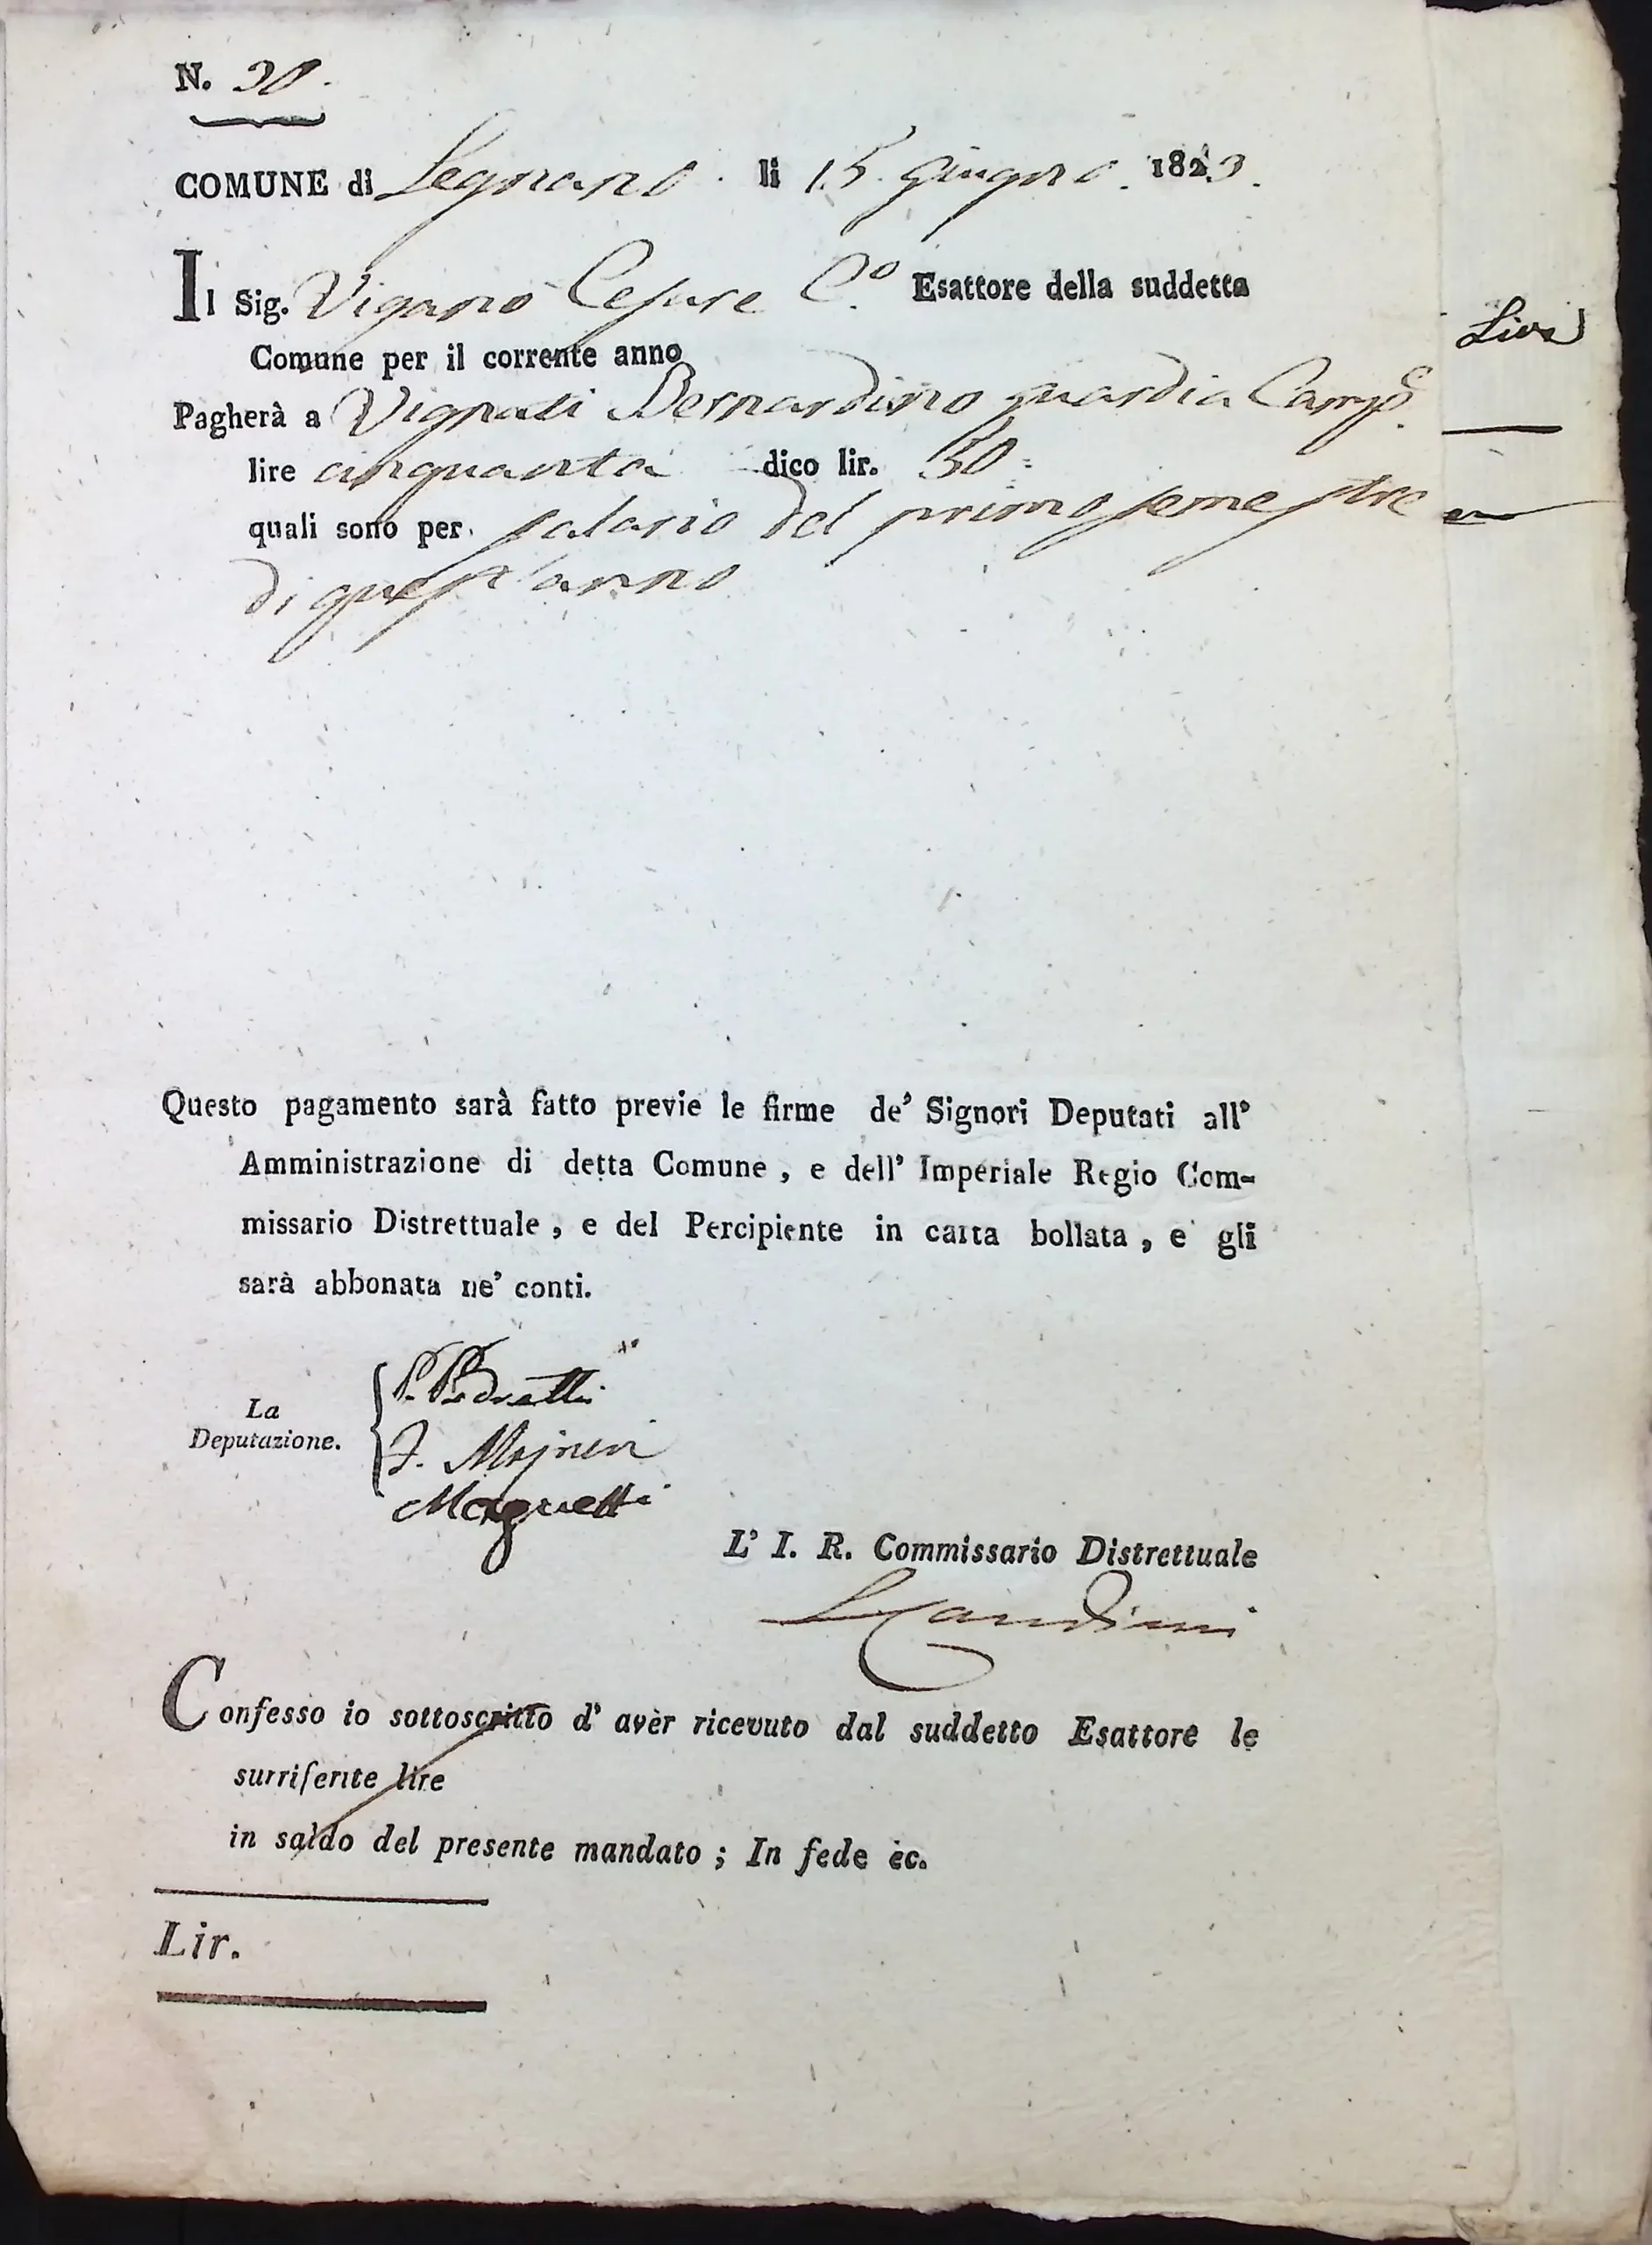 N. 30.
COMUNE di Legnano. li 15. giugno. 1823.
Il Sig. Viganò Cesare C.º Esattore della suddetta
Comune per il corrente anno
Pagherà a Vignati Bernardino guardia Camp.e
lire cinquanta dico lir. 50:
quali sono per salario del primo semestre
di quest'anno
Questo pagamento sarà fatto previe le firme de' Signori Deputati all'
Amministrazione di detta Comune, e dell' Imperiale Regio Com-
missario Distrettuale, e del Percipiente in carta bollata, e gli
sarà abbonata ne' conti.
La
Deputazione.
P. Pedretti
Magnetti
L' I. R. Commissario Distrettuale
Confesso io sottoscritto d' aver ricevuto dal suddetto Esattore le
surriferite lire
in saldo del presente mandato; In fede ec.
Lir.